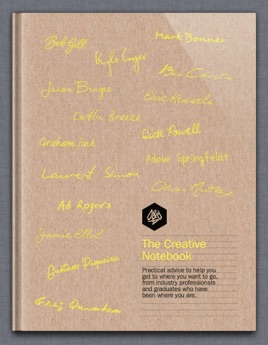 Bob Gill
Mark Bonner
Kyle Cooper
Jason Bruges
Erik Kessels
Caitlin Breeze
Dick Powell
Graham Fink
Adam Springfeldt
Laurent Simon
Ab Rogers
Jamie Ellul
Gustavo Piqueira
Greg Quinton
The Creative
Notebook
Practical advice to help you
get to where you want to go,
from industry professionals
and graduates who have
been where you are.